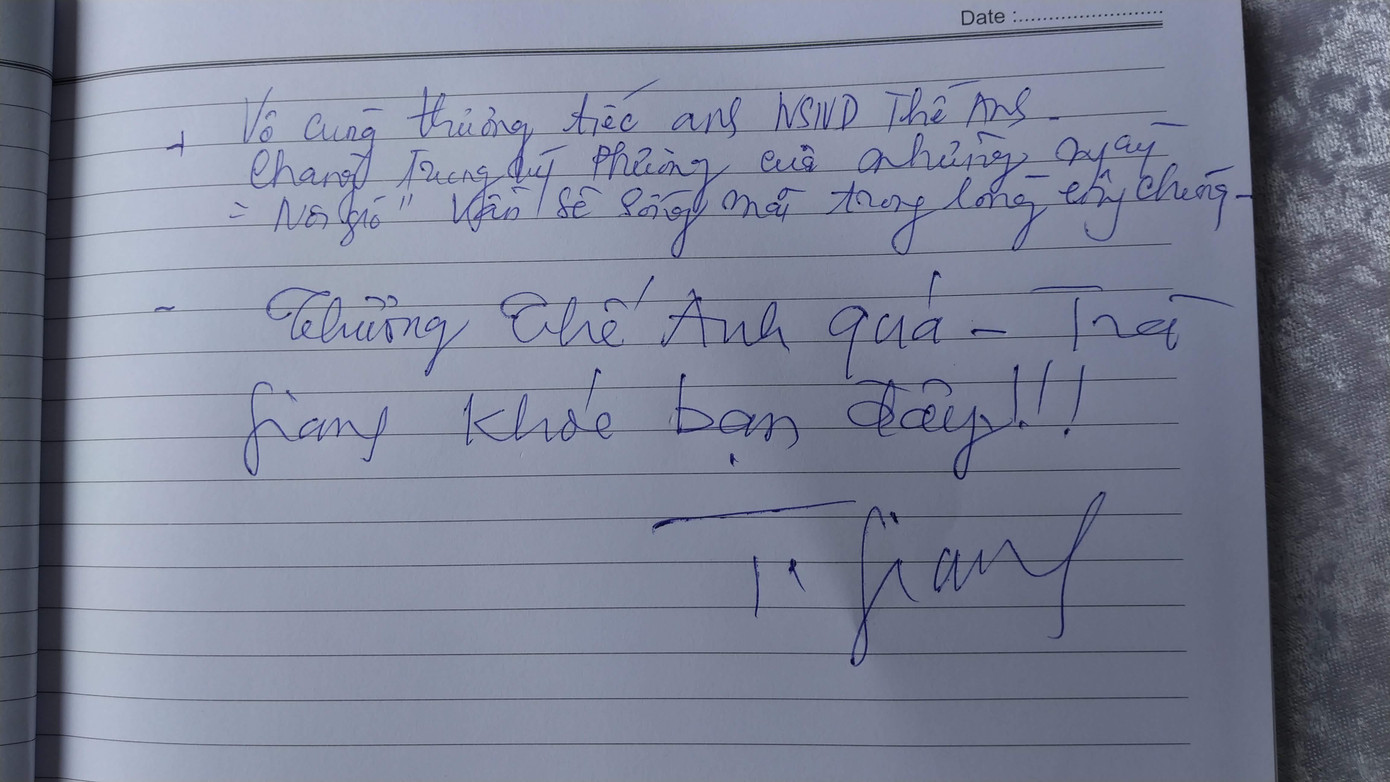 Date :
+ Vô cùng thương tiếc anh NSND Thế Anh -
Chàng Trung úy Phương của những ngày
"Nổi gió" Vẫn sẽ sống mãi trong lòng công chúng -
- Thương Thế Anh quá - Trà
Giang khóc bạn đây!!!
Tr Giang